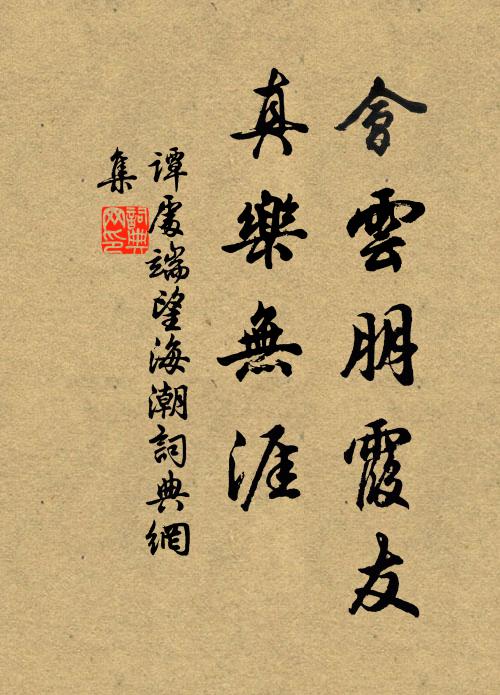 會雲朋霞友
真樂無涯
譚處端望海潮詞典網
集
詞典
网印